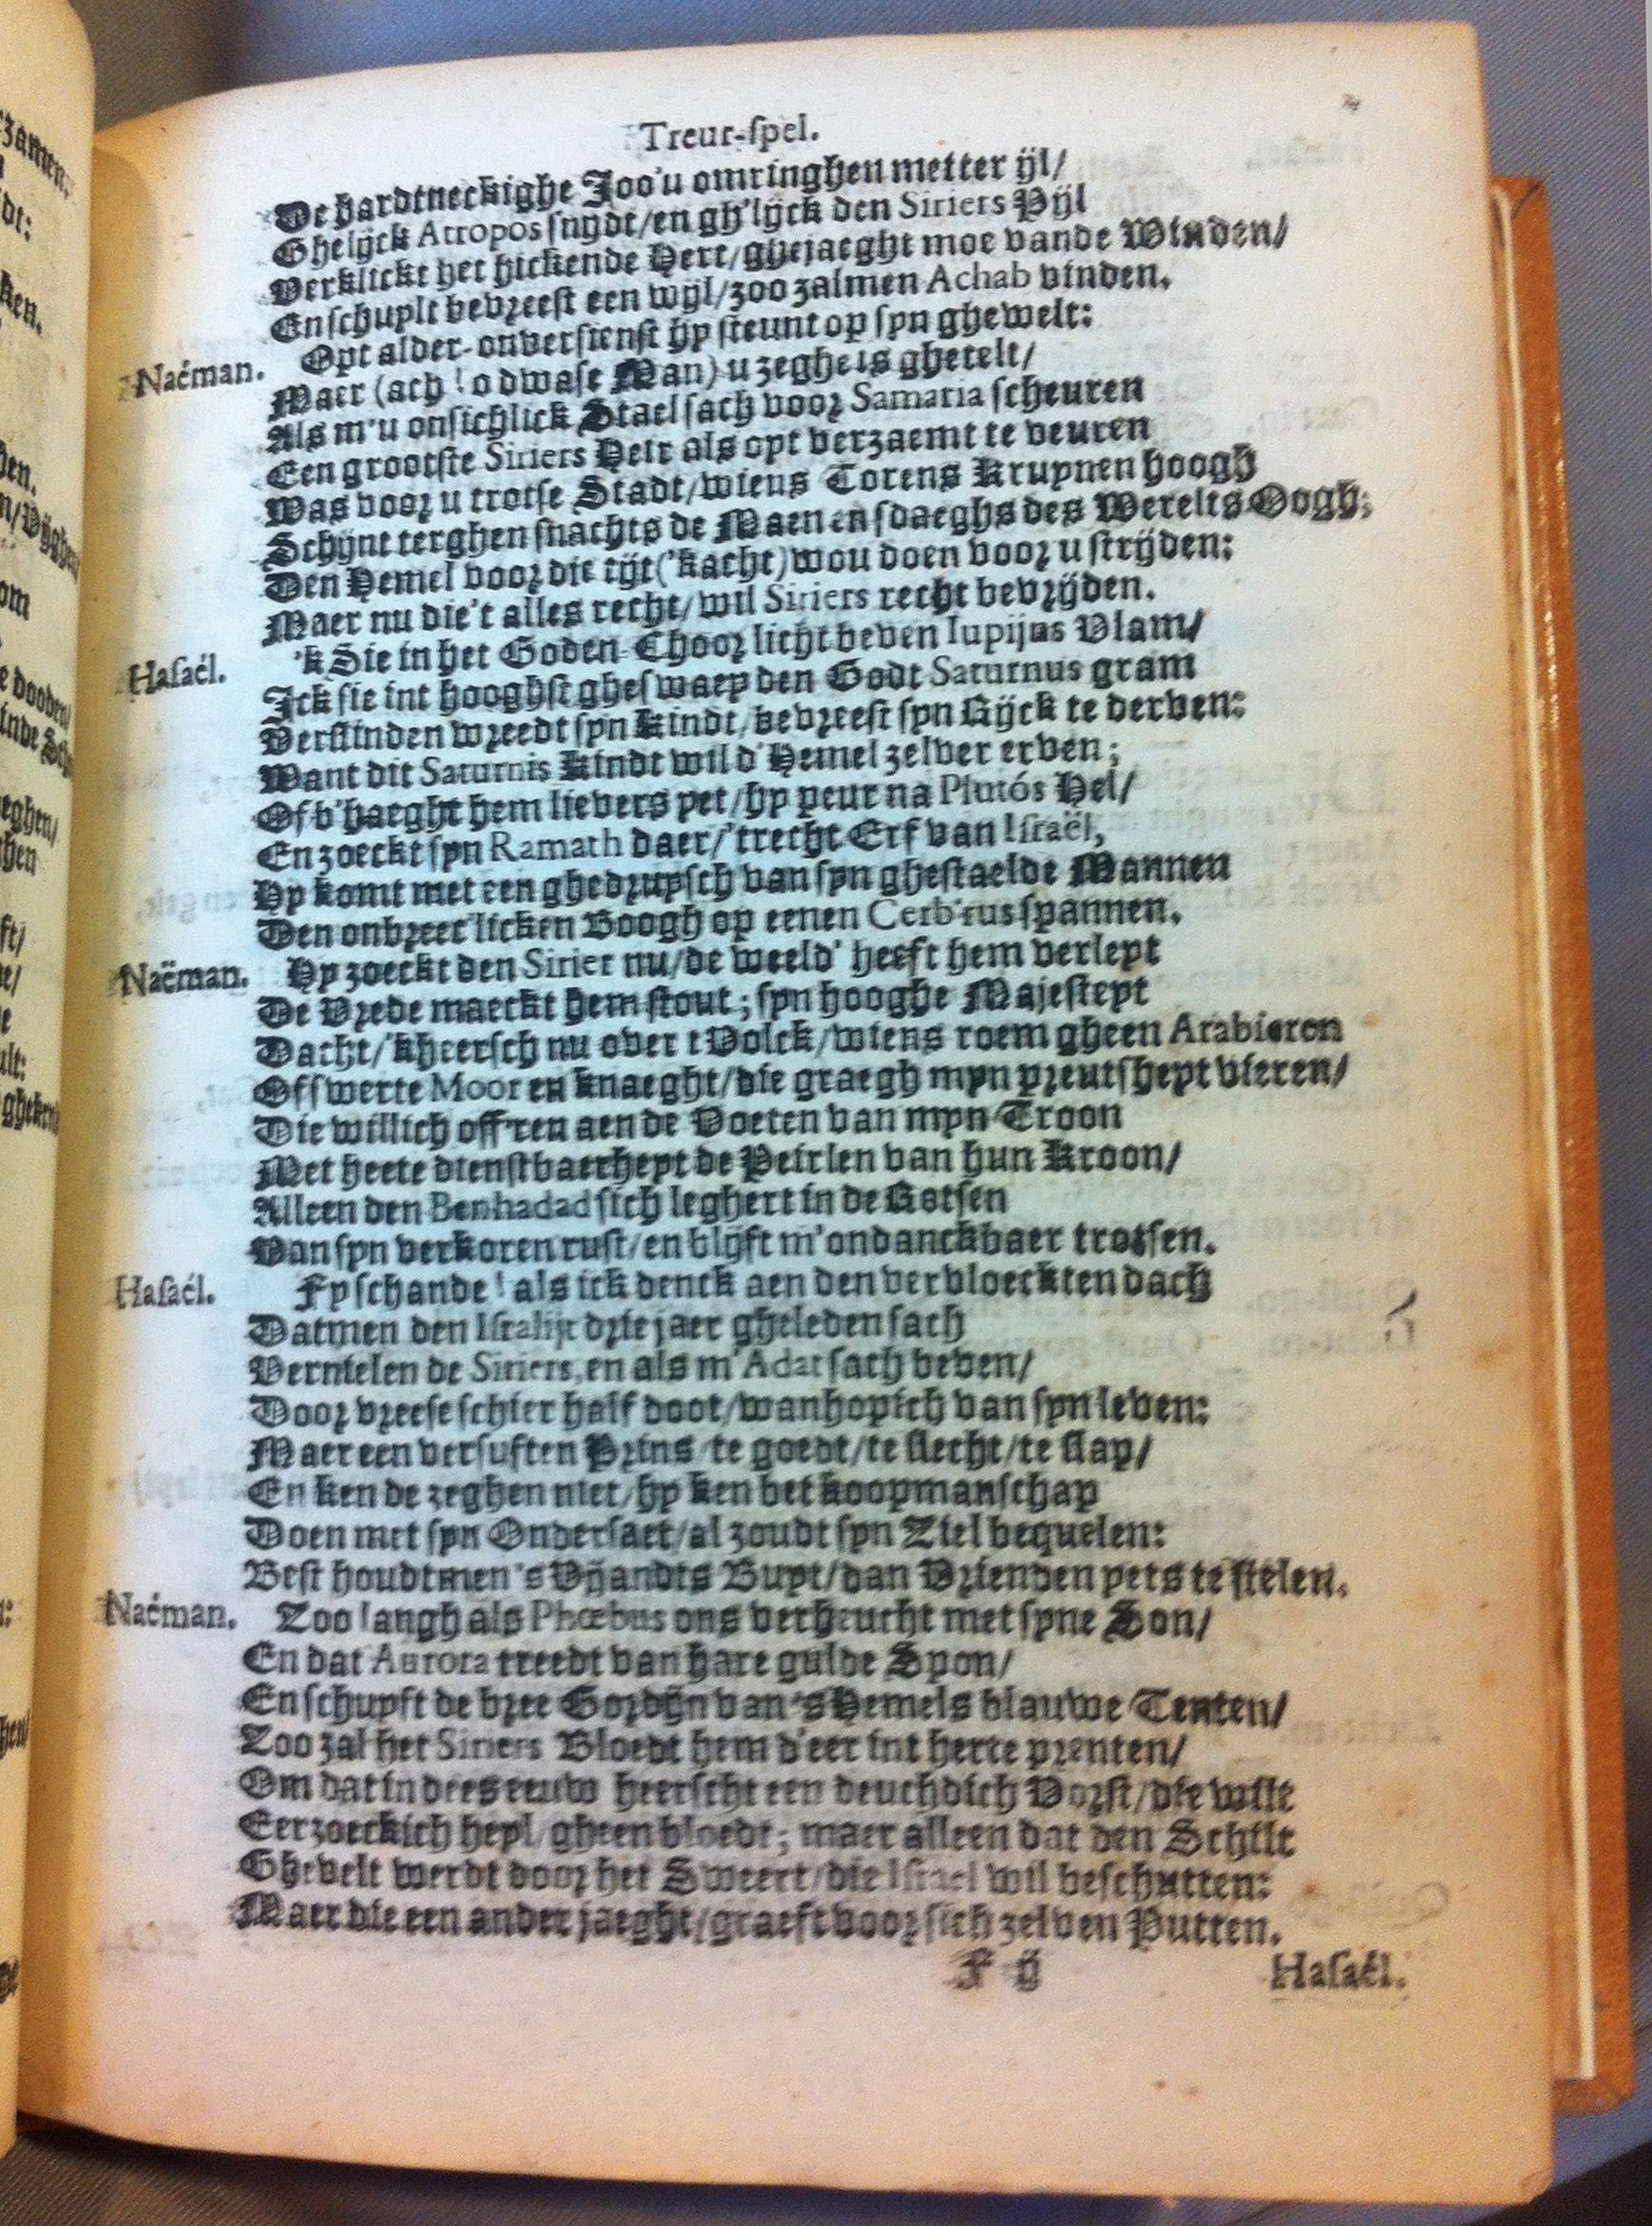 Treur-spel.
De hardtneckighe Joo'u omringhen metter ijl/
Ghelijck Atropos snydt/en gh'lijck den Siriers Pijl
Verklickt het hickende Hert/ghejaeght moe vande Winden/
En schuylt bevreest een wijl/zoo zalmen Achab vinden.
Opt alder-onversienst hy steunt op syn ghewelt:
Naëman. Maer (ach! o dwase Man) u zeghe is ghetelt/
Als m'u onsichlick Stael sach voor Samaria scheuren
Een grootste Siriers Heir als oyt verzaemt te veuren
Was voor u trotse Stadt/wiens Torens Kruynen hoogh
Schijnt terghen snachts de Maen en sdaeghs des Werelts Oogh;
Den Hemel voor die tijt('kacht)wou doen voor u strijden:
Maer nu die't alles recht/wil Siriers recht bevrijden.
Hasaël. 'k Sie in het Goden-Choor licht beven Iupijns Vlam/
Ick sie int hooghst gheswaey den Godt Saturnus gram
Verslinden wreedt syn kindt/bevreest syn Rijck te derven:
Want dit Saturnis kindt wil d'Hemel zelver erven;
Of b'haeght hem lievers yet/hy peur na Plutós Hel/
En zoeckt syn Ramath daer/'trecht Erf van Israël,
Hy komt met een ghedruysch van syn ghestaelde Mannen
Den onbreec'licken Boogh op eenen Cerb'rus spannen.
Naëman. Hy zoeckt den Sirier nu/de weeld' heeft hem verleyt
De Vrede maeckt hem stout; syn hooghe Majesteyt
Dacht/'kheersch nu over t Volck/wiens roem gheen Arabieren
Of swerte Mooren knaeght/die graegh myn preutsheyt vieren/
Die willich off'ren aen de Voeten van myn Troon
Met heete dienstbaerheyt de Peirlen van hun Kroon/
Alleen den Benhadad sich leghert in de Rotsen
Van syn verkoren rust/en blijft m'ondanckbaer trotsen.
Hasaël. Fy schande! als ick denck aen den vervloeckten dach
Datmen den Isralijt drie jaer gheleden sach
Vernielen de Siriers, en als m'Adat sach beven/
Door vreese schier half doot/wanhopich van syn leven:
Maer een versuften Prins/te goedt/te slecht/te slap/
En ken de zeghen niet/hy ken bet koopmanschap
Doen met syn Ondersaet/al zoudt syn Ziel bequelen:
Best houdtmen 's Vijandts Buyt/dan Vrienden yets te stelen.
Naëman. Zoo langh als Phœbus ons verheucht met syne Son/
En dat Aurora treedt van hare gulde Spon/
En schuyft de bree Gordijn van 's Hemels blauwe Tenten/
Zoo zal het Siriers Bloedt hem d'eer int herte prenten/
Om dat in dees eeuw heerscht een deuchdich Vorst/die wilt
Eerzoeckich heyl/gheen bloedt; maer alleen dat den Schilt
Ghevelt werdt door het Sweert/die Israel wil beschutten:
Maer die een ander jaeght/graeft voor sich zelven Putten.
F ij Hasaël.